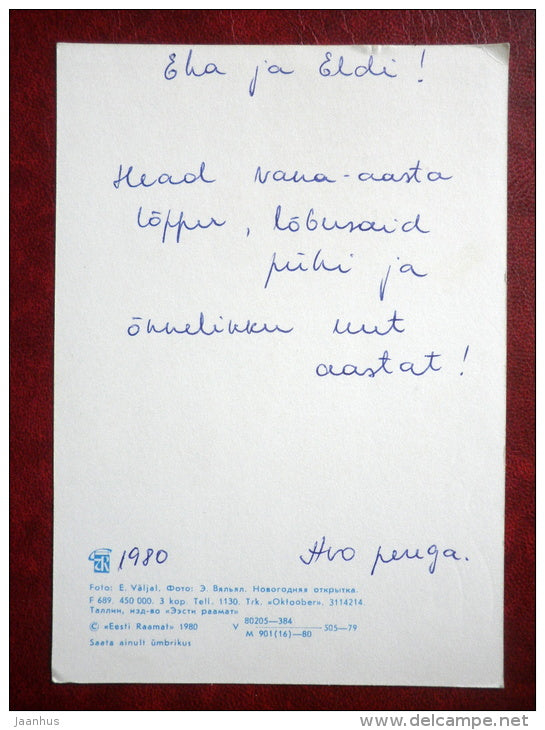 Eha ja Eldi!
Head vana-aasta
lõppu, lõbusaid
pühi ja
õnnelikku uut
aastat!
1980 Avo perega.
Foto: E. Väljal. Фото: Э. Вяльял. Новогодняя открытка.
F 689. 450 000. 3 kop. Tell. 1130. Trk. «Oktoober». 3114214.
Таллин, изд-во «Ээсти раамат»
© «Eesti Raamat» 1980 V 80205—384 505—79
M 901(16)—80
Saata ainult ümbrikus
Jaanhus
www.delcampe.net